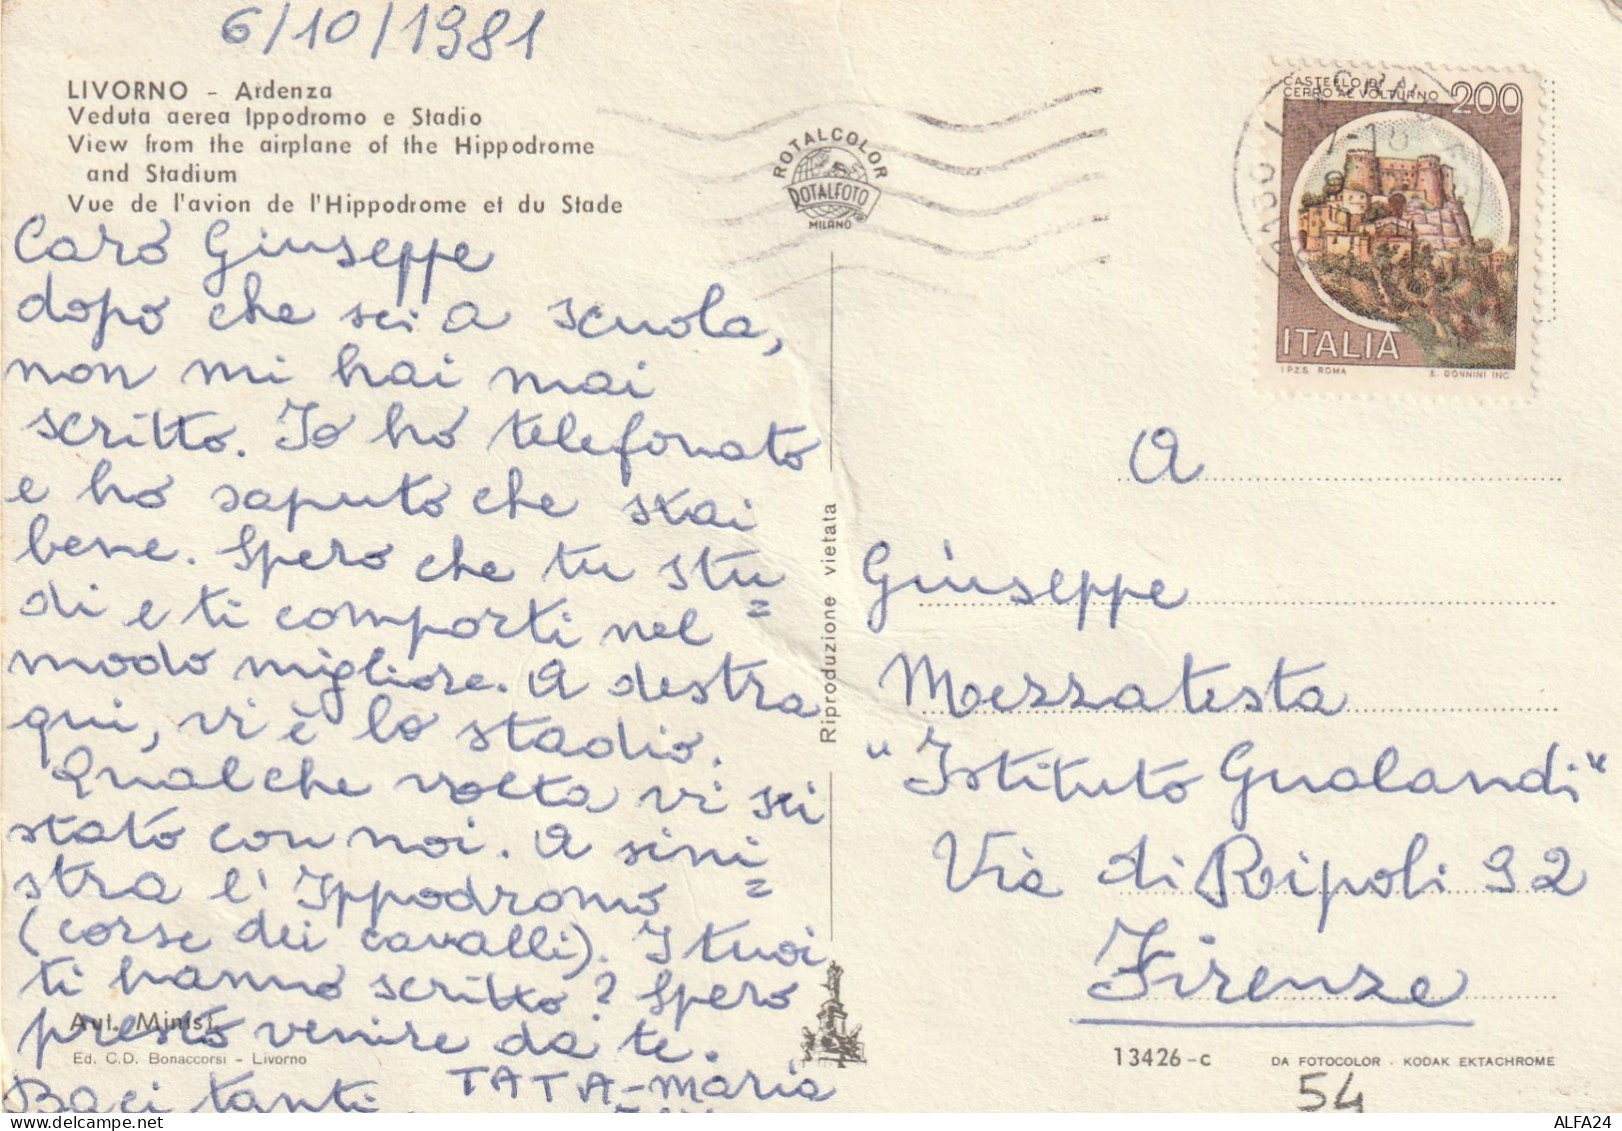 6/10/1981
LIVORNO - Ardenza
Veduta aerea Ippodromo e Stadio
View from the airplane of the Hippodrome
and Stadium
Vue de l'avion de l'Hippodrome et du Stade
Caro Giuseppe
dopo che sei a scuola,
non mi hai mai
scritto. Io ho telefonato
e ho saputo che stai
bene. Spero che tu stu=
di e ti comporti nel
modo migliore. A destra
qui, vi è lo stadio.
Qualche volta vi sei
stato con noi. A sini=
stra l'Ippodromo
(corse dei cavalli). I tuoi
ti hanno scritto? Spero
presto venire da te.
Baci tanti. TATA-Maria
Aut. Minist.
Ed. C.D. Bonaccorsi - Livorno
ROTALCOLOR
ROTALFOTO
MILANO
Riproduzione vietata
CASTELLO DI
CERRO AL VOLTURNO 200
ITALIA
I.P.Z.S. ROMA E. DONNINI INC.
A
Giuseppe
Mezzatesta
"Istituto Gualandi"
Via di Ripoli 92
Firenze
13426-c
DA FOTOCOLOR - KODAK EKTACHROME
54
www.delcampe.net
ALFA24